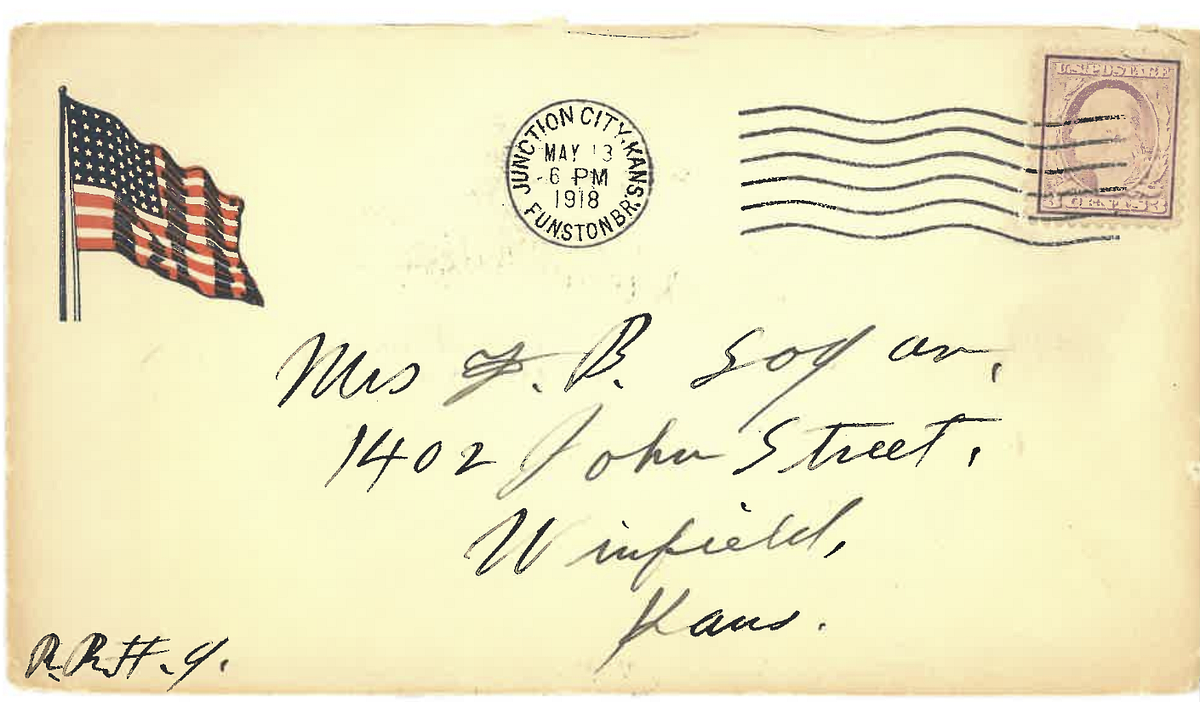 U.S. POSTAGE
JUNCTION CITY, KANS.
MAY 13
6 PM
1918
FUNSTON BR.
3 CENTS 3
Mrs F. B. Logan,
1402 John Street.
Winfield,
Kans.